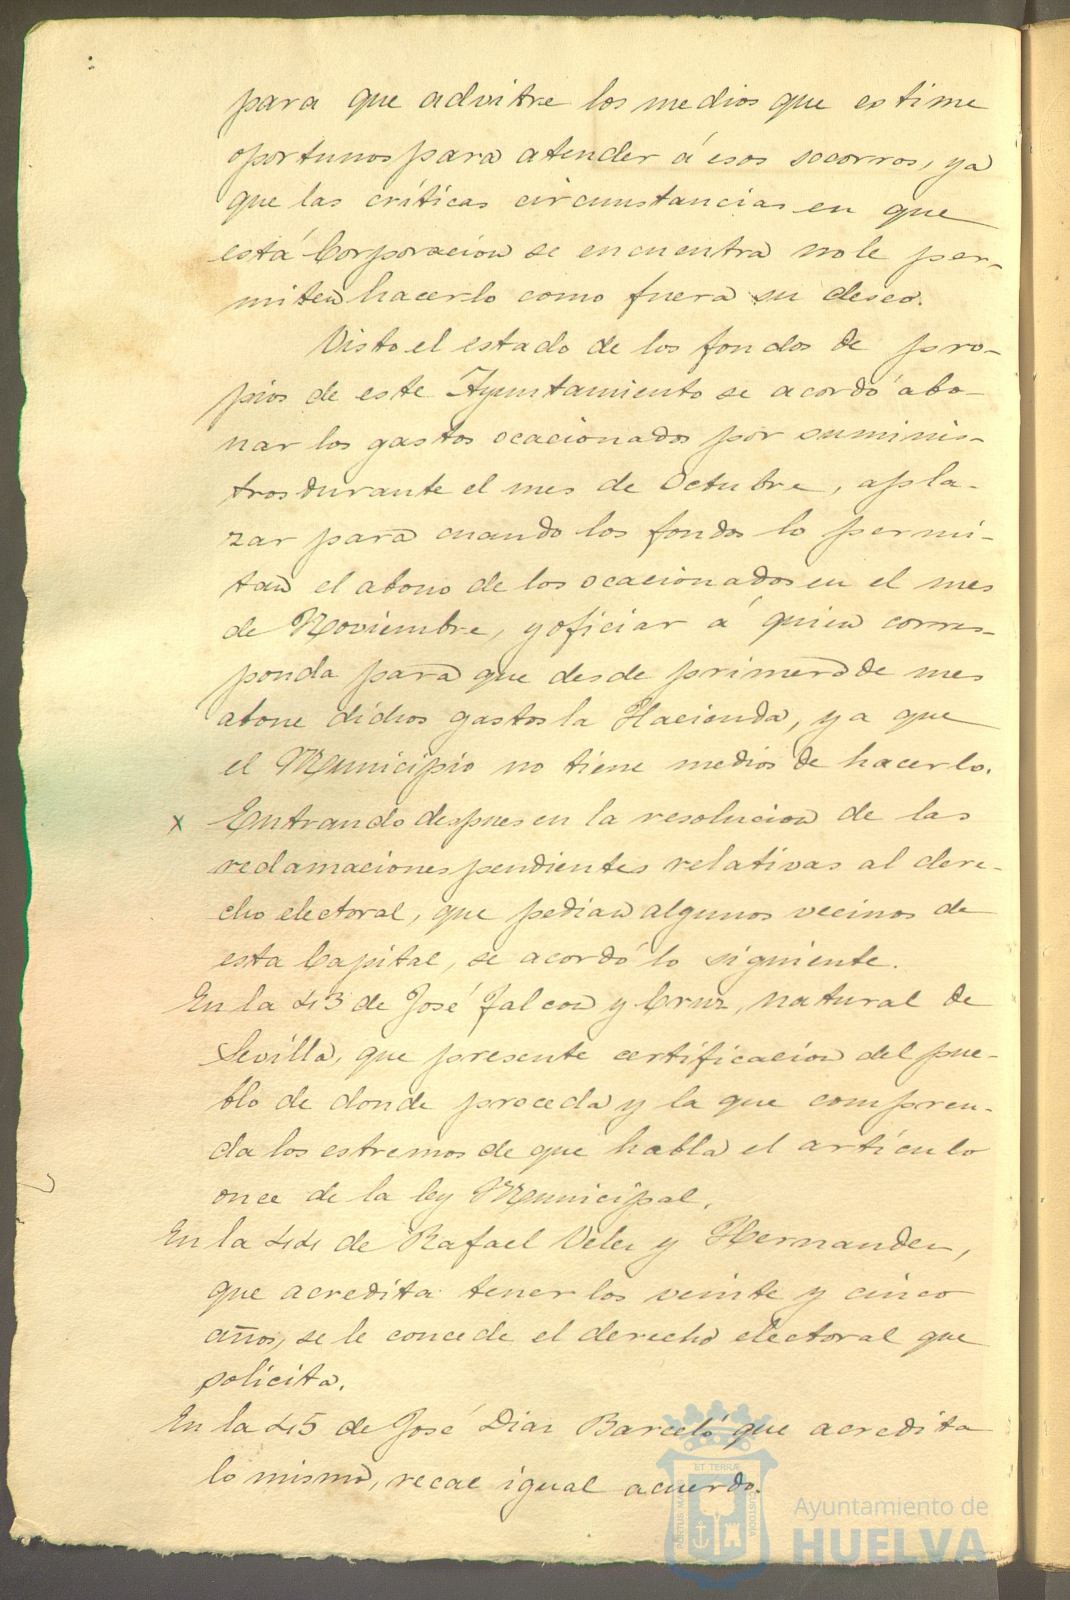 para que advitre los medios que estime
oportunos para atender á esos socorros, ya
que las críticas circunstancias en que
está Corporacion se encuentra no le per-
miten hacerlo como fuera su deseo.
Visto el estado de los fondos de pro-
pios de este Ayuntamiento se acordó abo-
nar los gastos ocacionados por suminis-
tros durante el mes de Octubre, apla-
zar para cuando los fondos lo permi-
tan el abono de los ocacionados en el mes
de Noviembre, y oficiar á quien corres-
ponda para que desde primero de mes
abone dichos gastos la Hacienda, ya que
el Municipio no tiene medios de hacerlo.
x Entrando despues en la resolucion de las
reclamaciones pendientes relativas al dere-
cho electoral, que pedian algunos vecinos de
esta Capital, se acordó lo siguiente.
En la 43 de José Falcon y Cruz, natural de
Sevilla, que presente certificacion del pue-
blo de donde proceda y la que compren-
da los estremos de que habla el artículo
once de la ley Municipal.
En la 44 de Rafael Velez y Hernandez,
que acredita tener los veinte y cinco
años, se le concede el derecho electoral que
solicita.
En la 45 de José Diaz Barceló que acredita
lo mismo, recae igual acuerdo.
ET TERRÆ
PORTUS MARIS
CUSTODIA
Ayuntamiento de
HUELVA